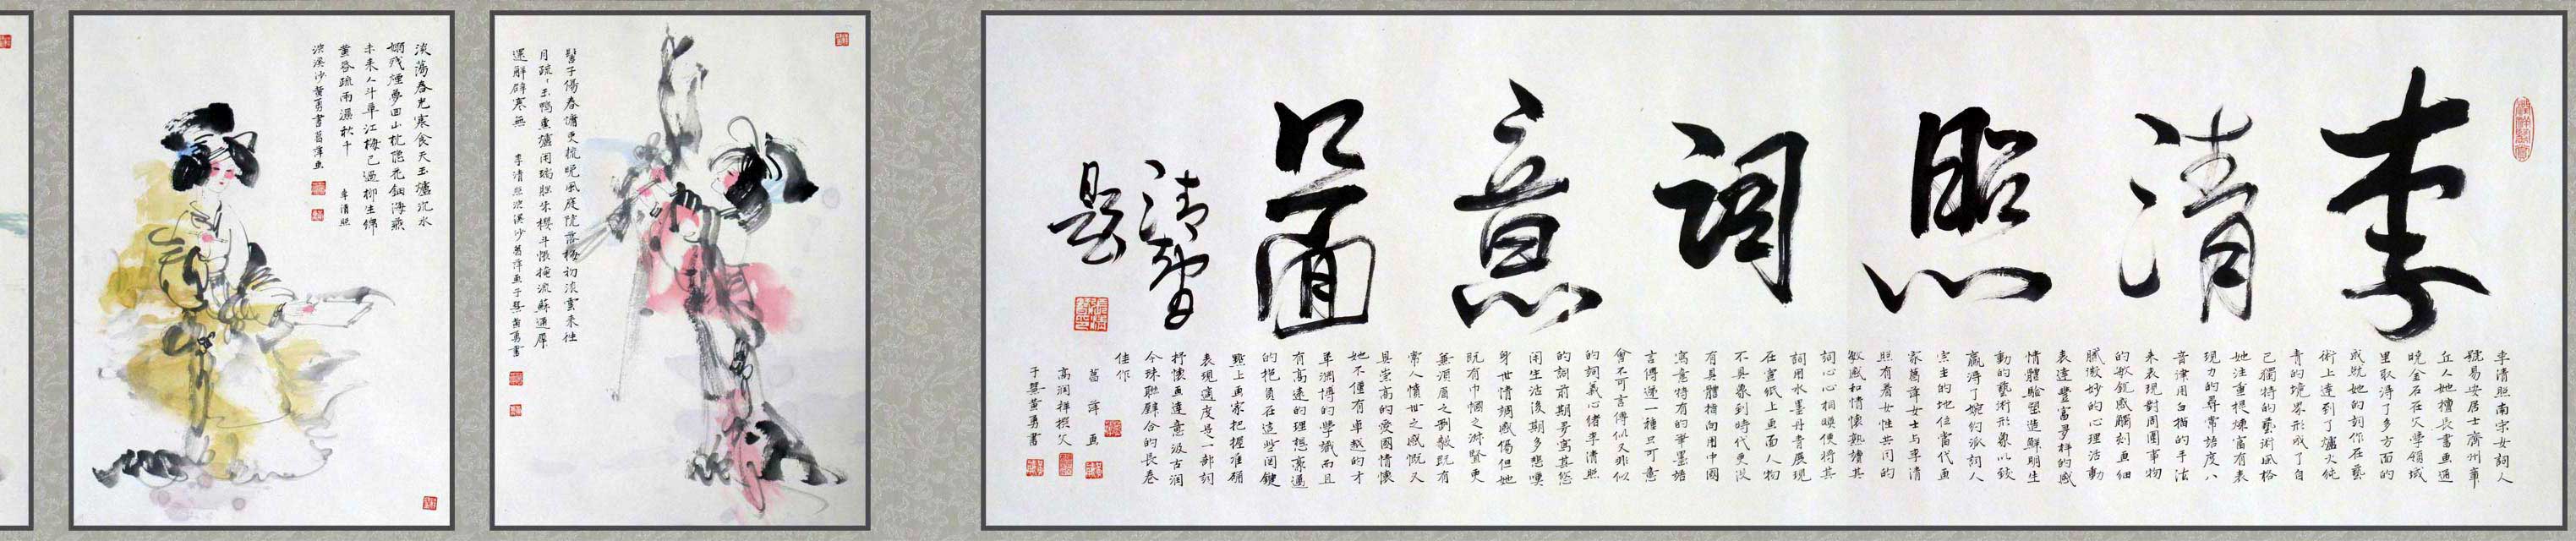 李清照詞意啚
清智
題
李清照南宋女詞人
號易安居士齊州章
丘人她擅長書画通
曉金石在文學領域
里取得了多方面的
成就她的創作在藝
術上達到了爐火純
青的境界形成了自
己獨特的藝術風格
她注重提煉富有表
現力的尋常語度八
音律用白描的手法
來表現對周圍事物
的敏銳感觸刻画細
膩微妙的心理活動
表達豐富多样的感
情體驗塑造鮮明生
動的藝術形象以致
贏得了婉約派詞人
宗主的地位當代画
家葛萍女士与李清
照有着女性共同的
敏感和情懷熟讀其
詞心心相暎便將其
詞用水墨丹青展現
在宣紙上画面人物
不具象到時代更沒
有具體指向用中國
寫意特有的筆墨語
言傳递一種只可意
會不可言傳似又非似
的詞義心緒李清照
的詞前期多寫其悠
閑生活後期多悲嘆
身世情調感傷但她
既有巾幗之淋賢更
兼須眉之剛毅既有
常人憤世之感慨又
具崇高的愛國情懷
她不僅有卓越的才
華渊博的學識而且
有高遠的理想豪邁
的抱負在這些関鍵
點上画家把握准确
表現適度是一部詞
抒懷画達意汲古润
今珠聯璧合的長卷
佳作
葛萍画
高润祥撰文
子龔黄勇書
髻子傷春慵更梳晚風庭院落梅初淡雲来往
月疏〻玉鴨熏爐闲瑞腦朱櫻斗帳掩流蘇通犀
還解辟寒無　李清照浣溪沙葛萍画子龔黄勇書
淡蕩春光寒食天玉爐沉水
嫋殘煙夢回山枕隱花鈿海燕
未来人斗草江梅已過柳生綿
黄昏疏雨濕秋千　李清照
浣溪沙黄勇書葛萍画